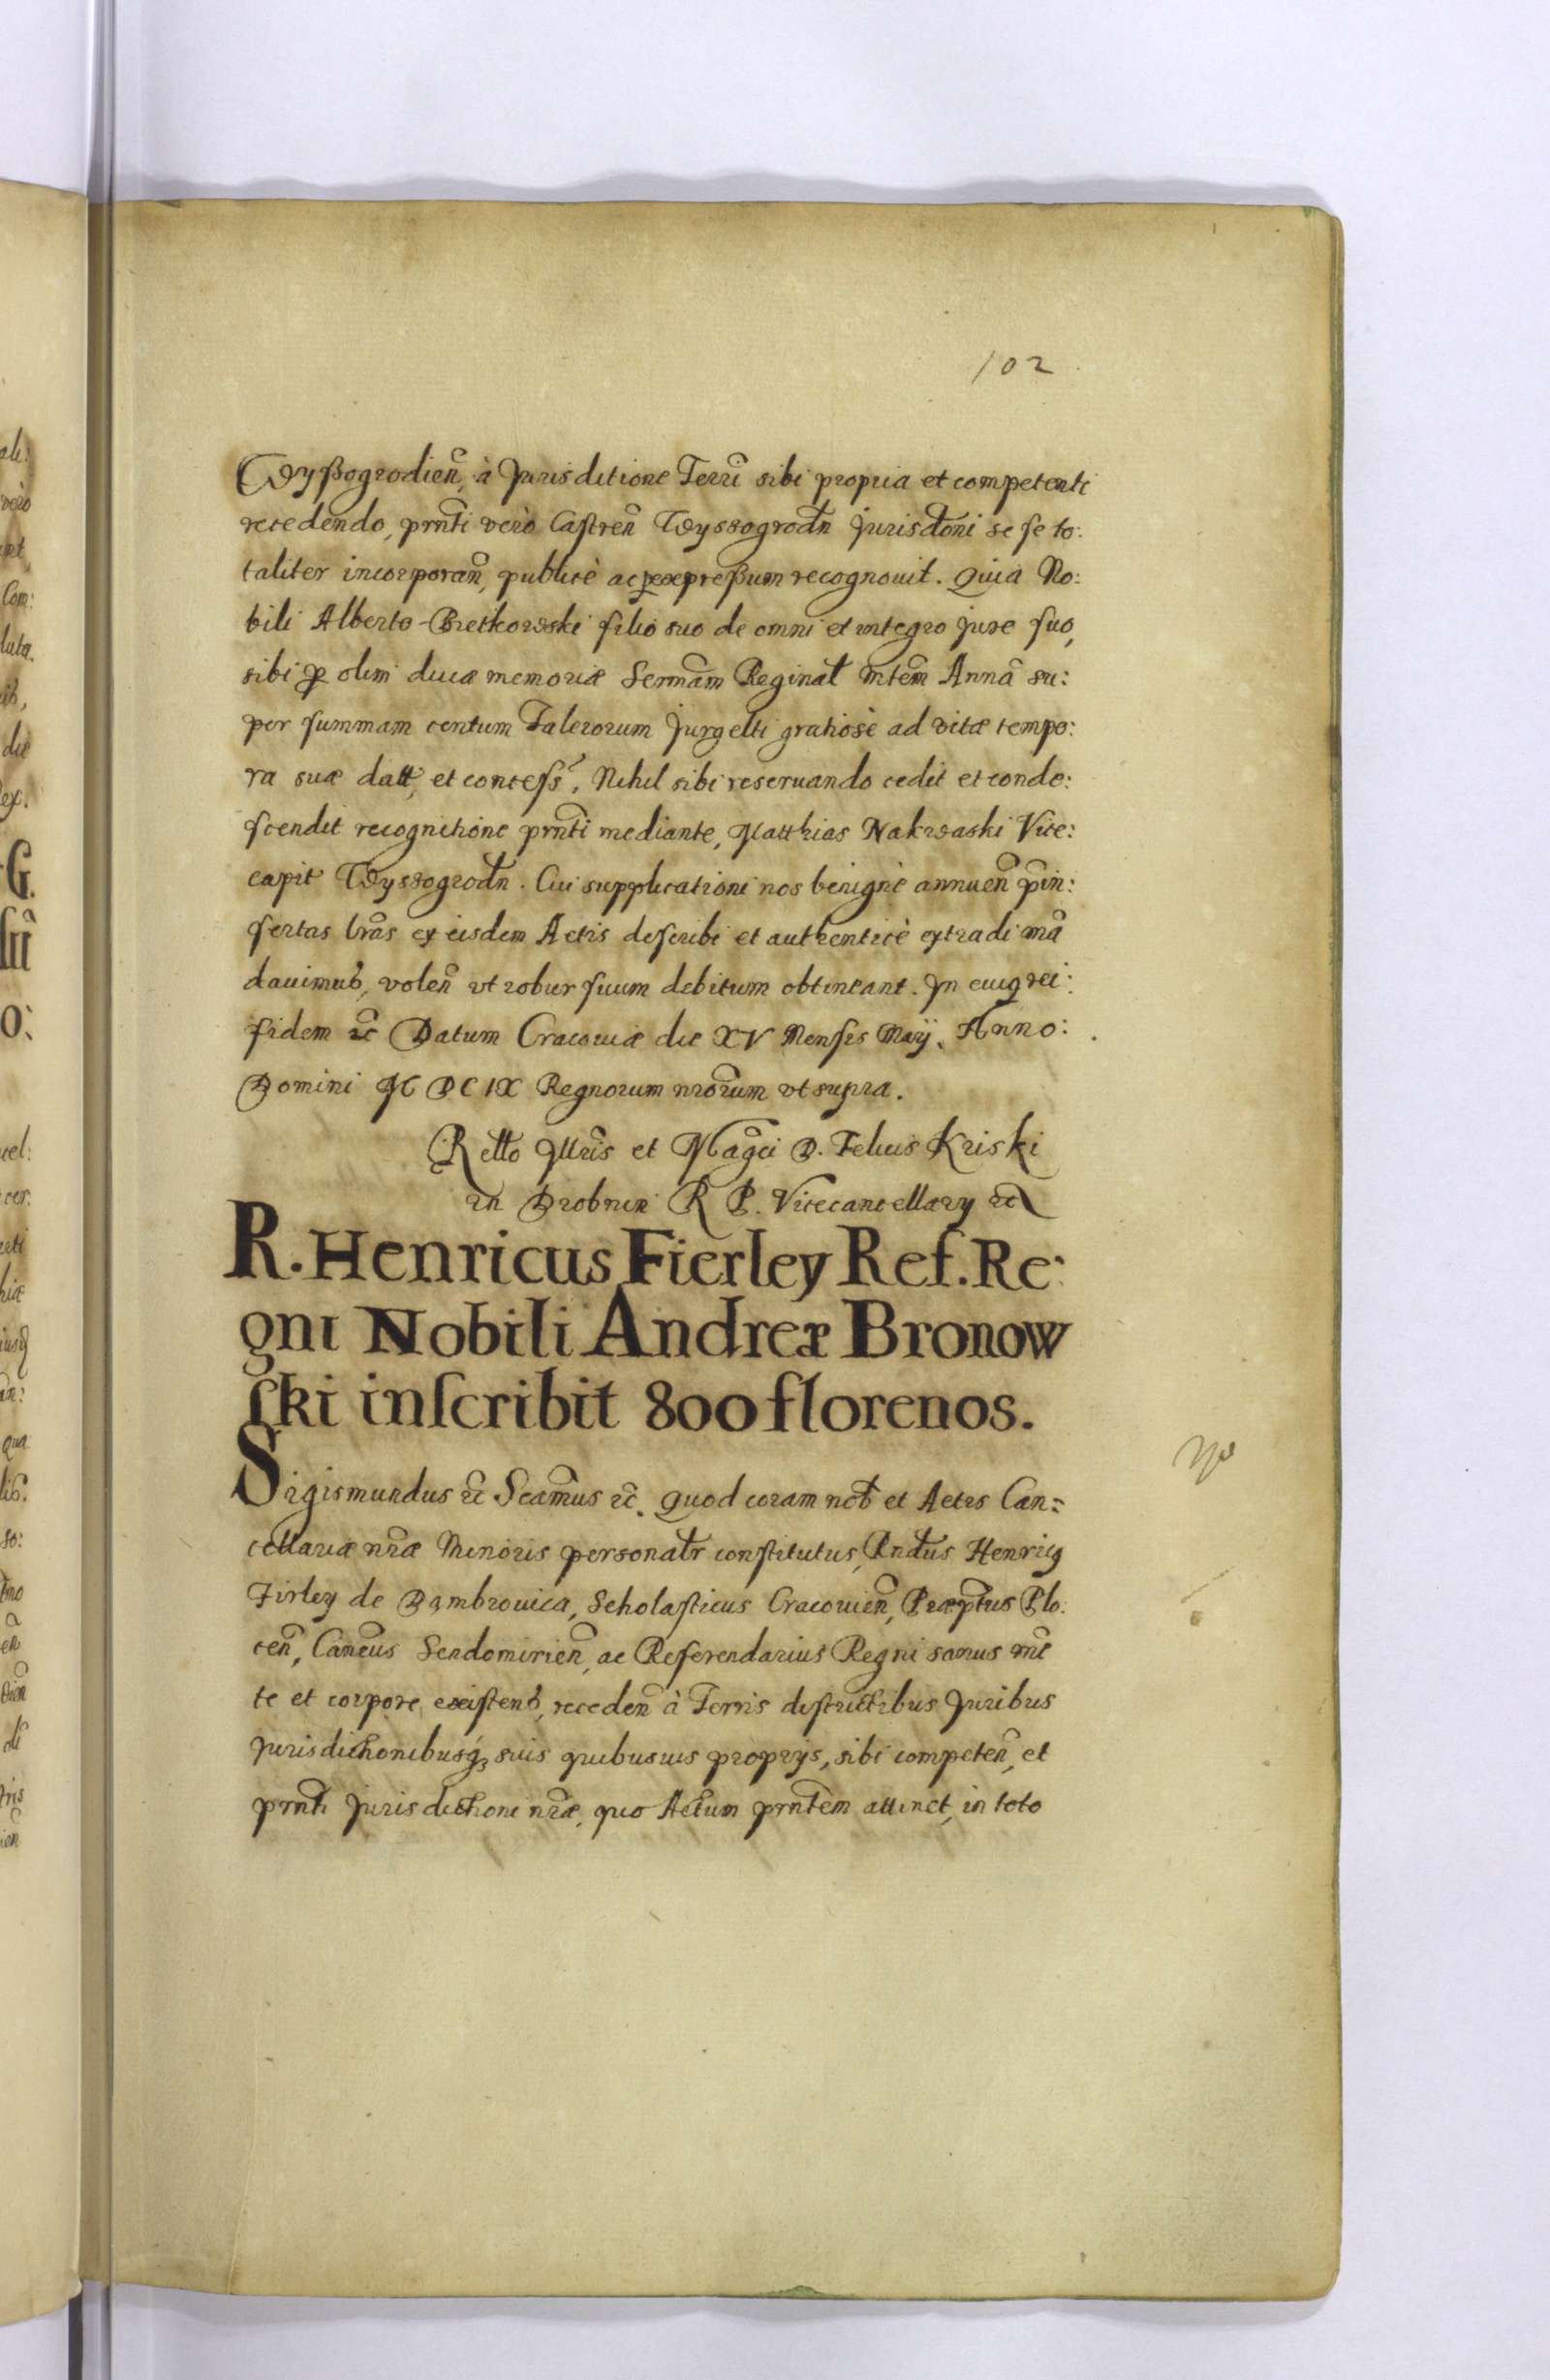 102
Wyßogrodien̄, à Jurisditione Terrī sibi propria et competenti
recedendo, prn̄ti verò Castren̄ Wyszogrodn̄ Jurisdtōni se se to:
taliter incorporan̄, publicè ac per expreßum recognouit. Quia No:
bili Alberto Bretkowski filio suo de omni et integro Jure suo,
sibi per olim diuæ memoriæ Sermā̄m Reginal̄ Annā su:
per summam centum Talerorum Jurgelti gratiosè ad vitæ tempo:
ra suæ datt, et concess, Nihil sibi reseruando cedit et conde:
scendit recognitione prn̄ti mediante, Matthias Nakwaski Vice:
capit Wyszogrodn̄. Cui supplicationi nos benignè annuen̄ p̄in:
sertas lrās ex eisdem Actis describi et authenticè extradi mā
dauimus, volen̄ vt robur suum debitum obtineant. Jn cuius rei:
fidem ec̄ Datum Cracouiæ die XV Mensis Maij. Anno:
Domini M DC IX Regnorum nrōrum vt supra.
Retto Jllrīs et Magci D. Felicis Kriski
in Drobnin R P. Vicecancellary ec̄
R. Henricus Fierley Ref. Re:
gni Nobili Andreæ Bronow
ski inscribit 800 florenos.
Sigismundus ec̄ Scām̄us ec̄. Quod coram nob̄ et Actis Can:
cellariæ nrǣ Minoris personalr̄ constitutus, Rndūs Henricus
Firley de Dambrouica, Scholasticus Cracouien̄, Præptūs Plo:
cen̄, Canc̄us Sendomirien̄, ac Referendarius Regni sanus mē
te et corpore existens, receden̄ à Terris districtibus Juribus
Jurisdictionibusq; suis quibusuis proprijs, sibi competen̄, et
prn̄ti Jurisdictioni nrǣ, quo Actum prn̄tem attinet, in toto